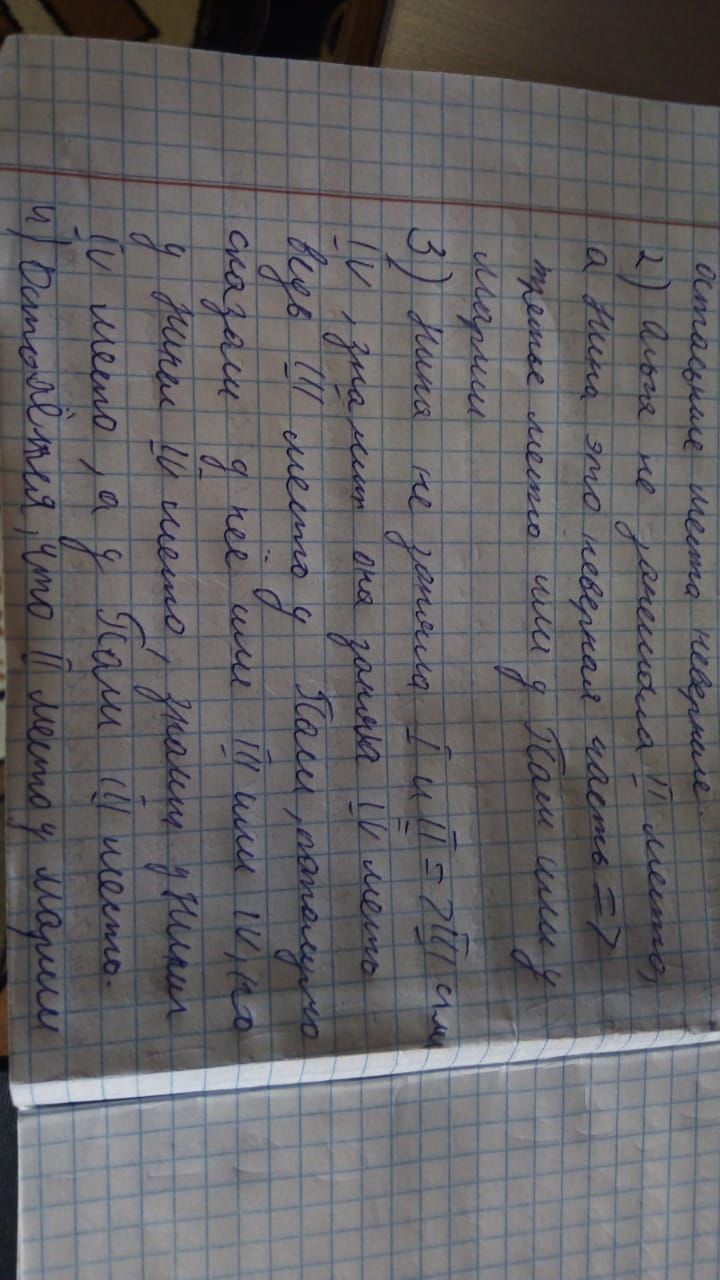 остальные места неверные.
2) Ольга не занимала II место,
а Нина это неверная часть =>
третье место или у Пали или у
Марии
3) Нина не заняла I и II => III или
IV, значит она заняла IV место
ведь III место у Пали, потому что
сказали у неё или III или IV, но
у Нины IV место, значит у Нины
IV место, а у Пали III место.
4) Остаётся, что II место у Марии